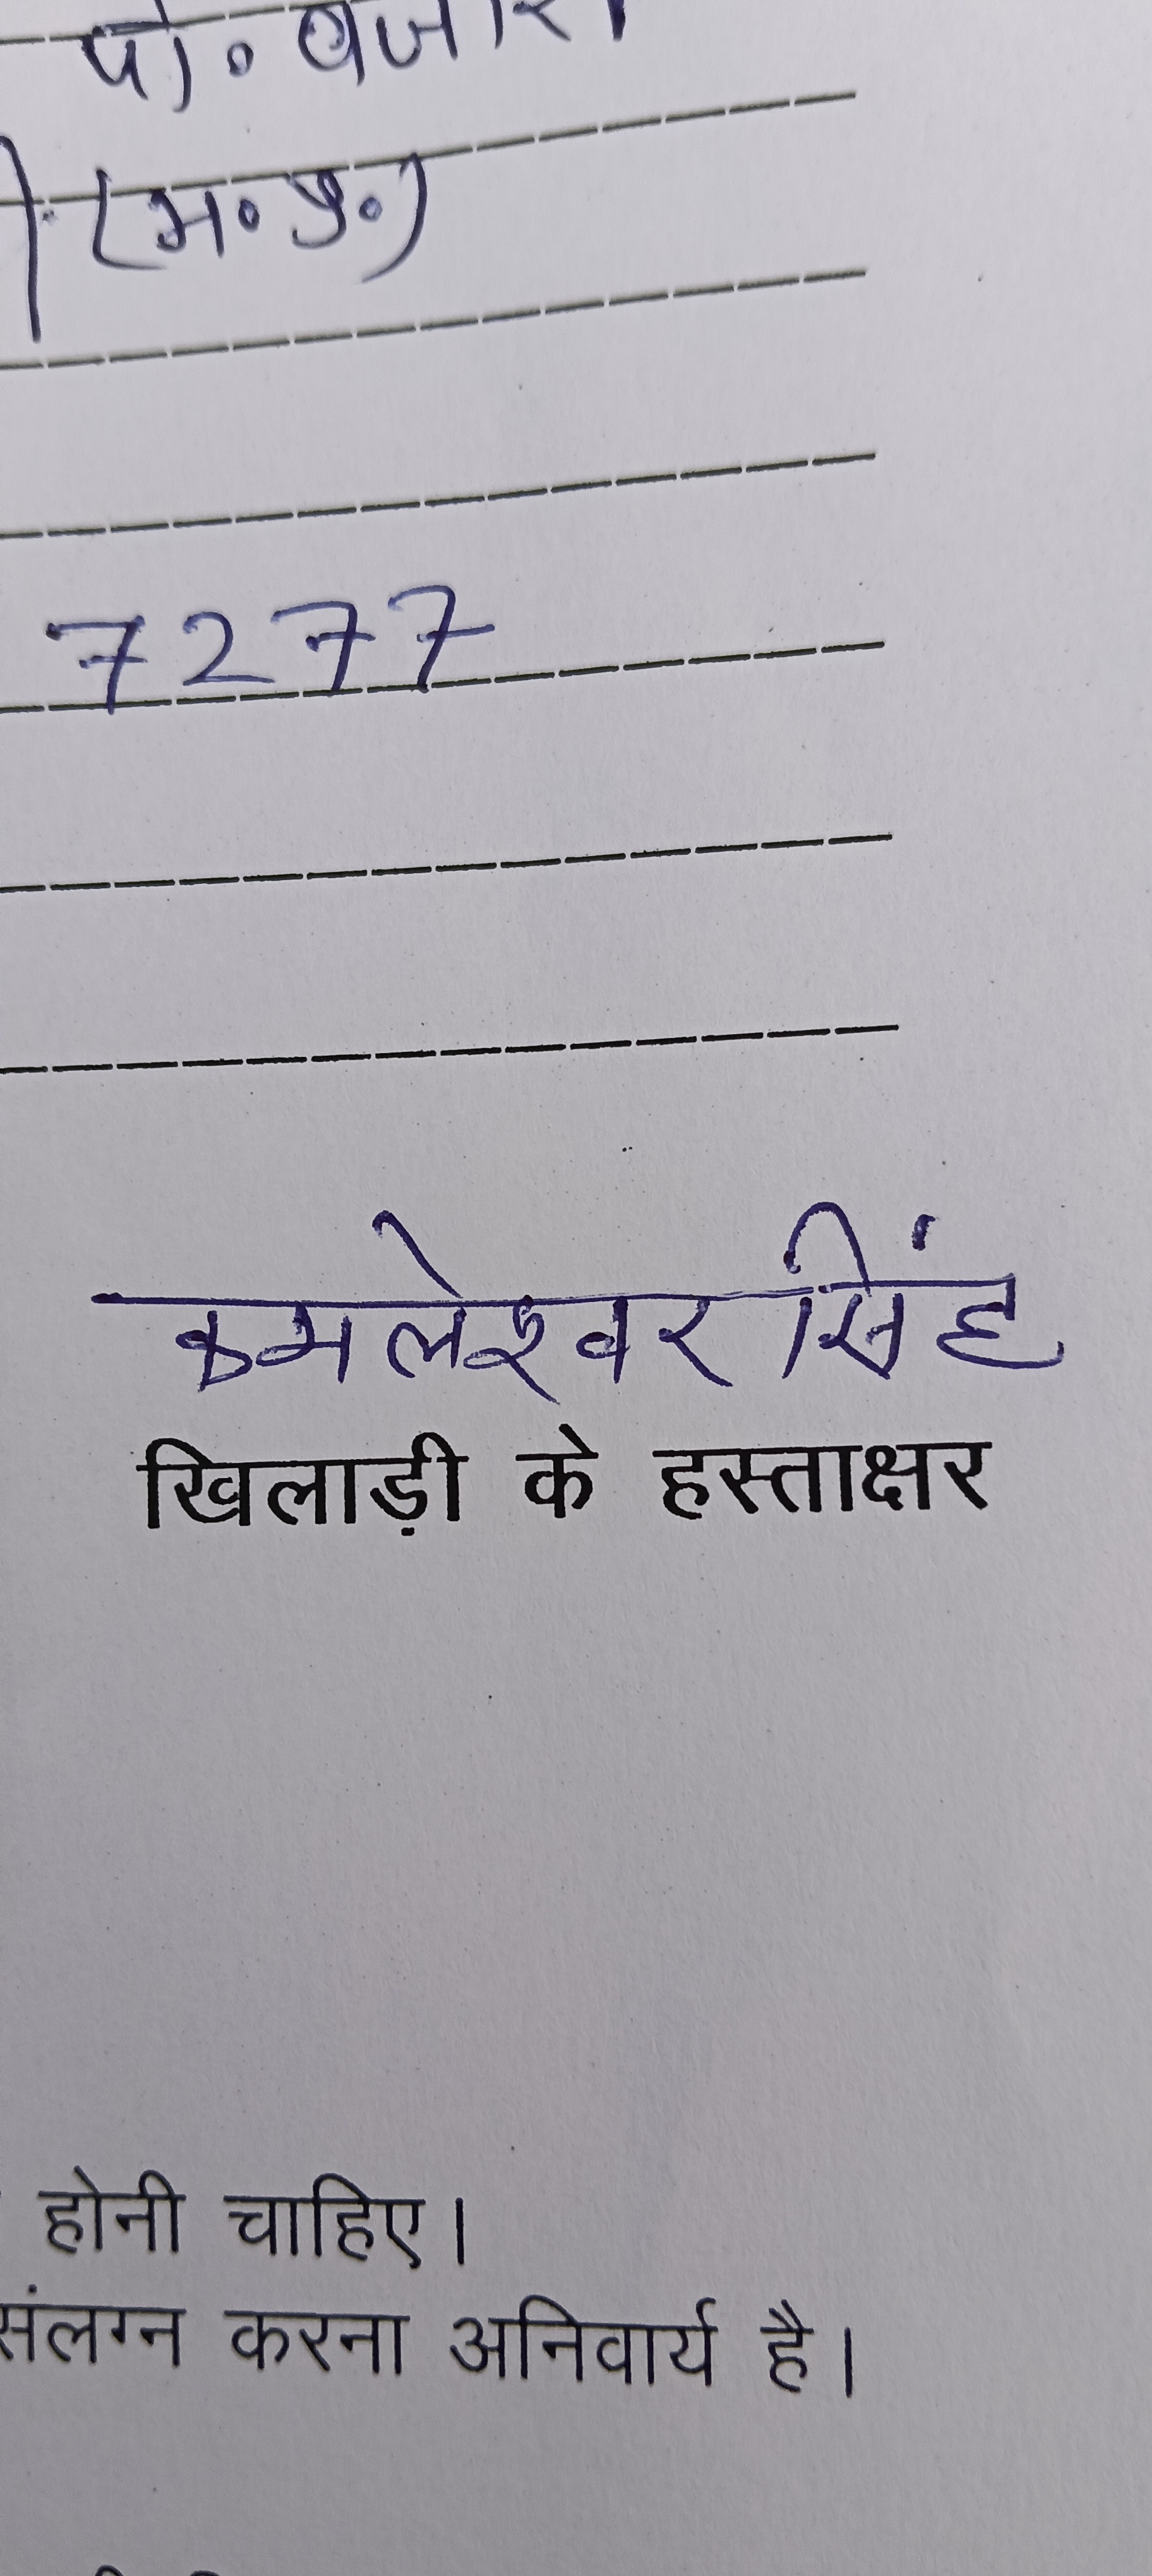 पो. बजारी
(म. प्र.)
7277
कमलेश्वर सिंह
खिलाड़ी के हस्ताक्षर
होनी चाहिए।
संलग्न करना अनिवार्य है।